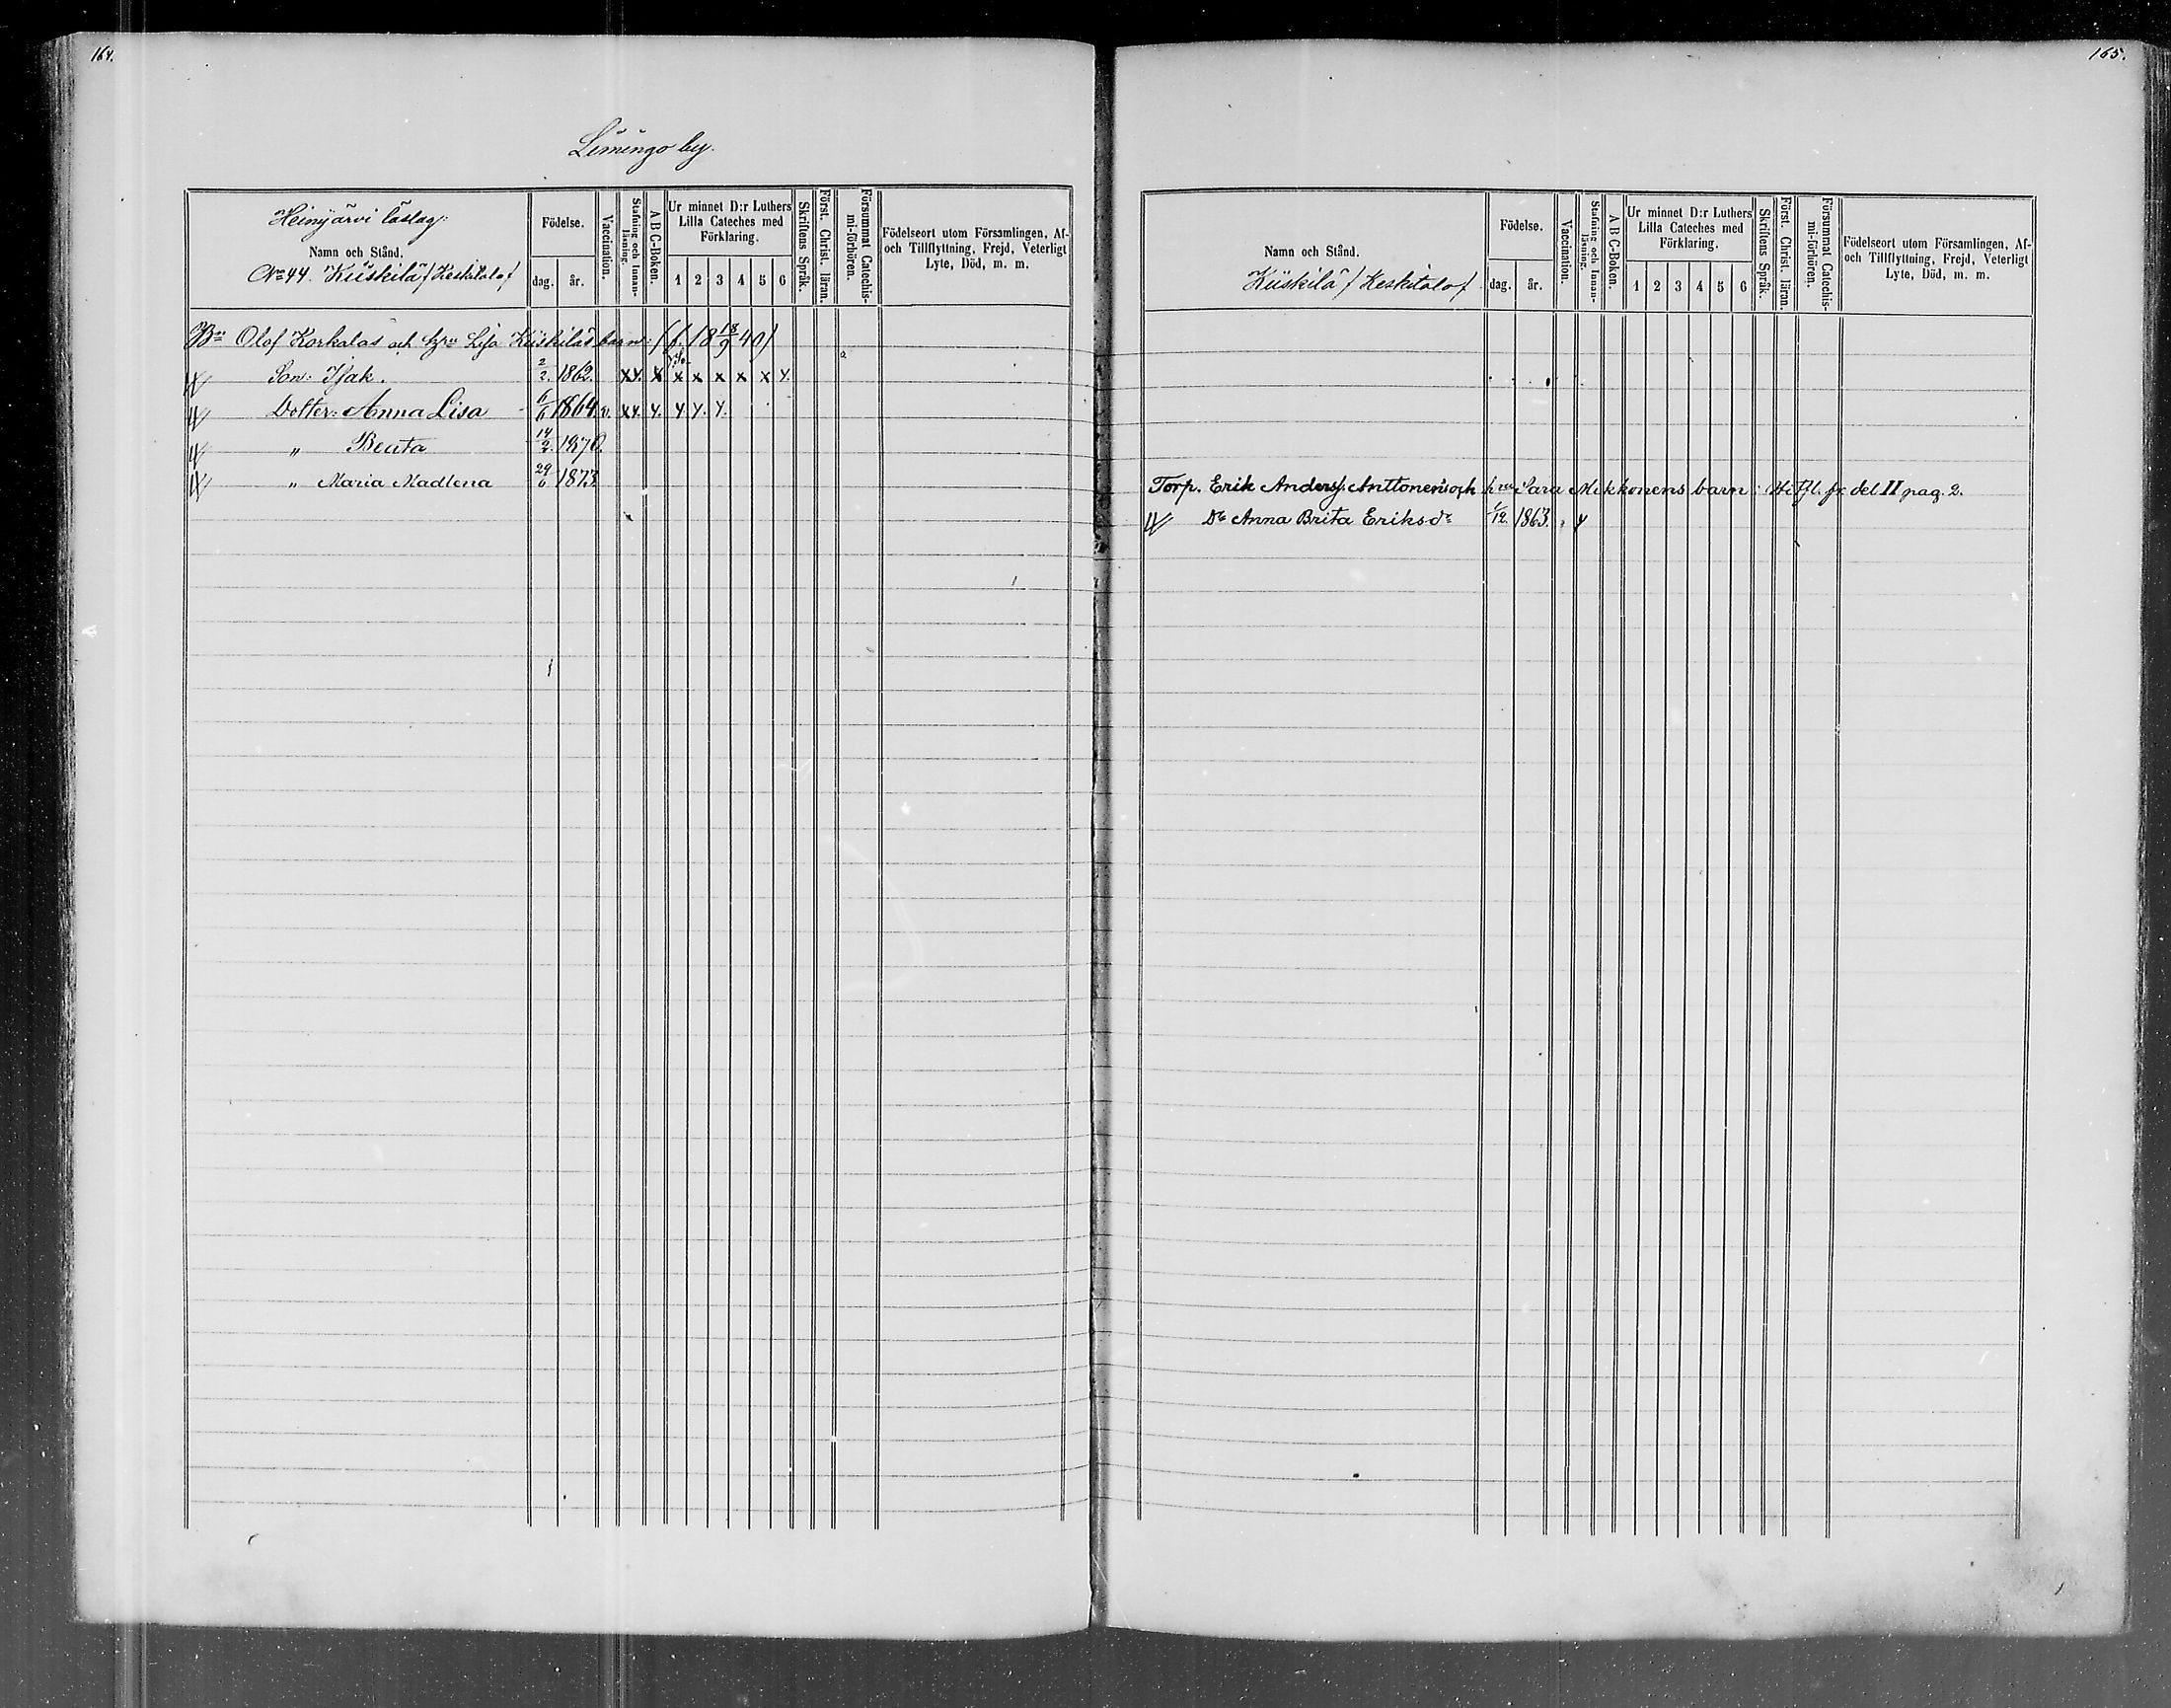 164.
Limingo by.
Heinijärvi läslag:
Namn och Stånd.
No 44. Kiiskilä / Keskitalo /
Födelse.
dag. år.
Vaccination.
Stafning och Innan-läsning.
A B C-Boken.
Ur minnet D:r Luthers
Lilla Cateches med
Förklaring.
1 2 3 4 5 6
Skriftens Språk.
Först. Christ. läran.
Försummat Catechis-mi-förhören.
Födelseort utom Församlingen, Af-
och Tillflyttning, Frejd, Veterligt
Lyte, Död, m. m.
Bn Olof Korkalas och hru Lisa Kiiskiläs barn: / (f. 18 18/9 40)
Son: Isak. 2/2. 1862. x y. x x x x x x y.
Dotter: Anna Lisa 6/6 1864. v. x y. y. y y. y.
" Beata 14/2. 1870.
" Maria Madlena 29/6 1873.
165.
Namn och Stånd.
Kiiskilä / Keskitalo /
Födelse.
dag. år.
Vaccination.
Stafning och Innan-läsning.
A B C-Boken.
Ur minnet D:r Luthers
Lilla Cateches med
Förklaring.
1 2 3 4 5 6
Skriftens Språk.
Först. Christ. läran.
Försummat Catechis-mi-förhören.
Födelseort utom Församlingen, Af-
och Tillflyttning, Frejd, Veterligt
Lyte, Död, m. m.
Torp. Erik Anderss. Anttonens och hru Sara Mikkonens barn: Hitfl. fr. del II pag. 2.
Dr Anna Brita Eriksdr 1/12. 1863. y